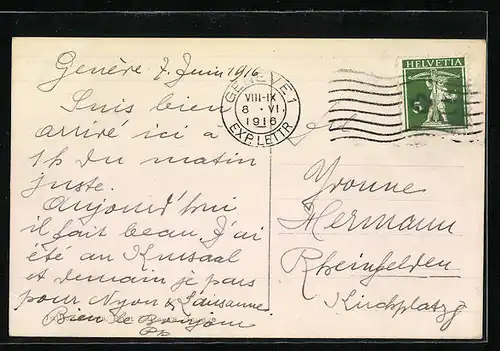 Genève 7 Juin 1916
Suis bien
arrivé ici à
1h du matin
juste.
Aujourd'hui
il fait beau. J'ai
été au Kursaal
et demain je pars
pour Nyon & Lausanne
Bien le Bonjour
GENEVE 1
VIII-IX
8 · VI.
1916
EXP. LETTR
HELVETIA
5
Yvonne
Hermann
Rheinfelden
Kirchplatz